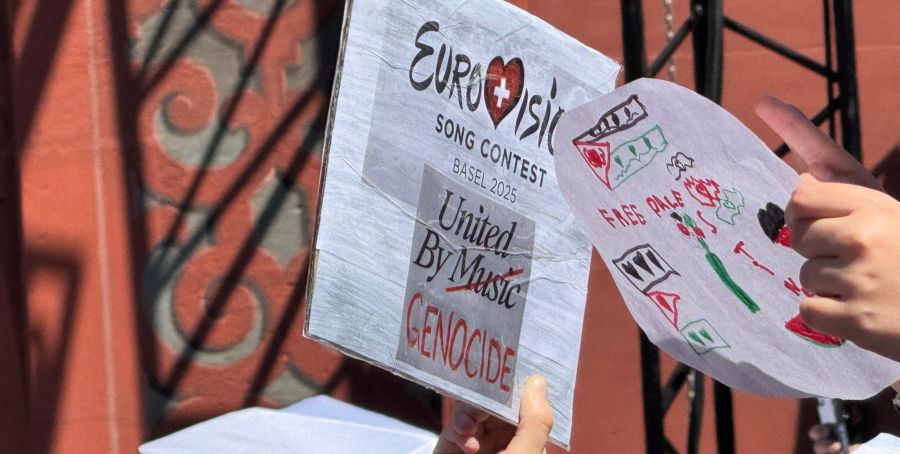 EUROVISION
SONG CONTEST
BASEL 2025
United
By Music
GENOCIDE
FREE PALE